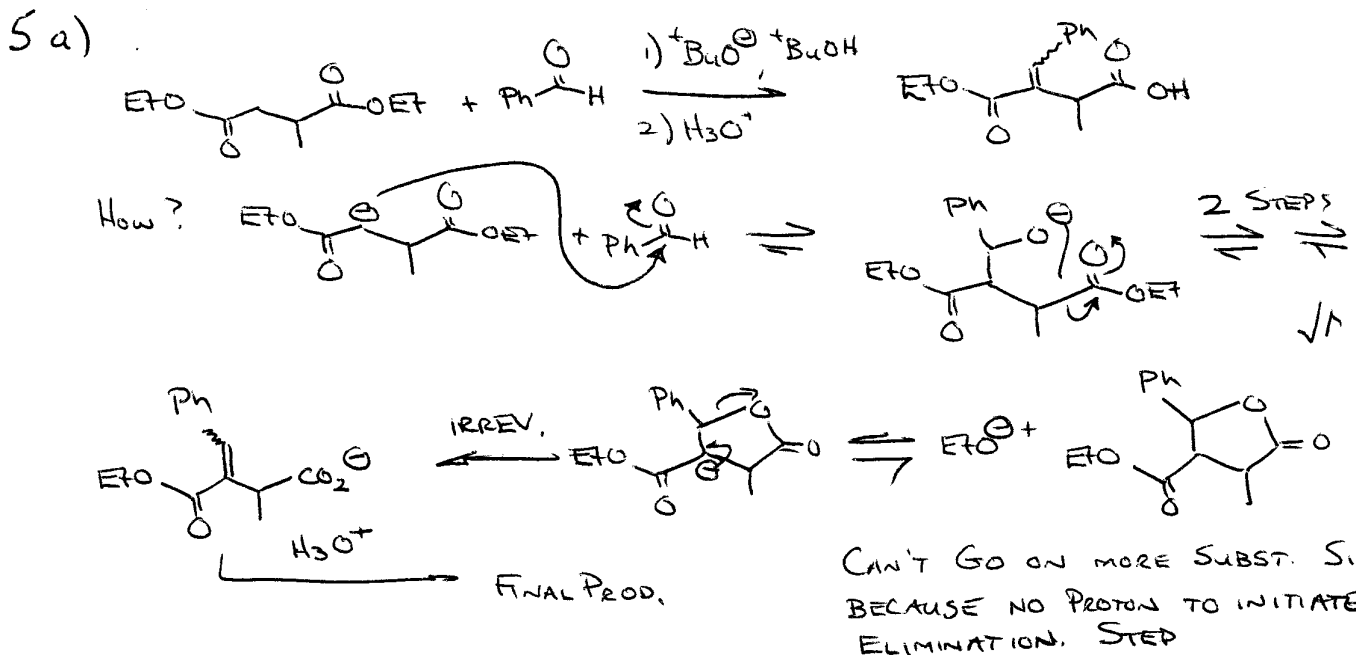 5 a)
EtO O O OEt + Ph O H 1) tBuO⊖, tBuOH 2) H3O+ EtO O Ph O OH
How? EtO O ⊖ O OEt + Ph O H ⇌ Ph O⊖ EtO O O OEt 2 STEPS
Ph EtO O CO2⊖ IRREV. Ph O EtO O ⊖ O EtO⊖ + Ph O EtO O O
H3O+ FINAL PROD.
CAN'T GO ON MORE SUBST.
BECAUSE NO PROTON TO INITIATE
ELIMINATION. STEP